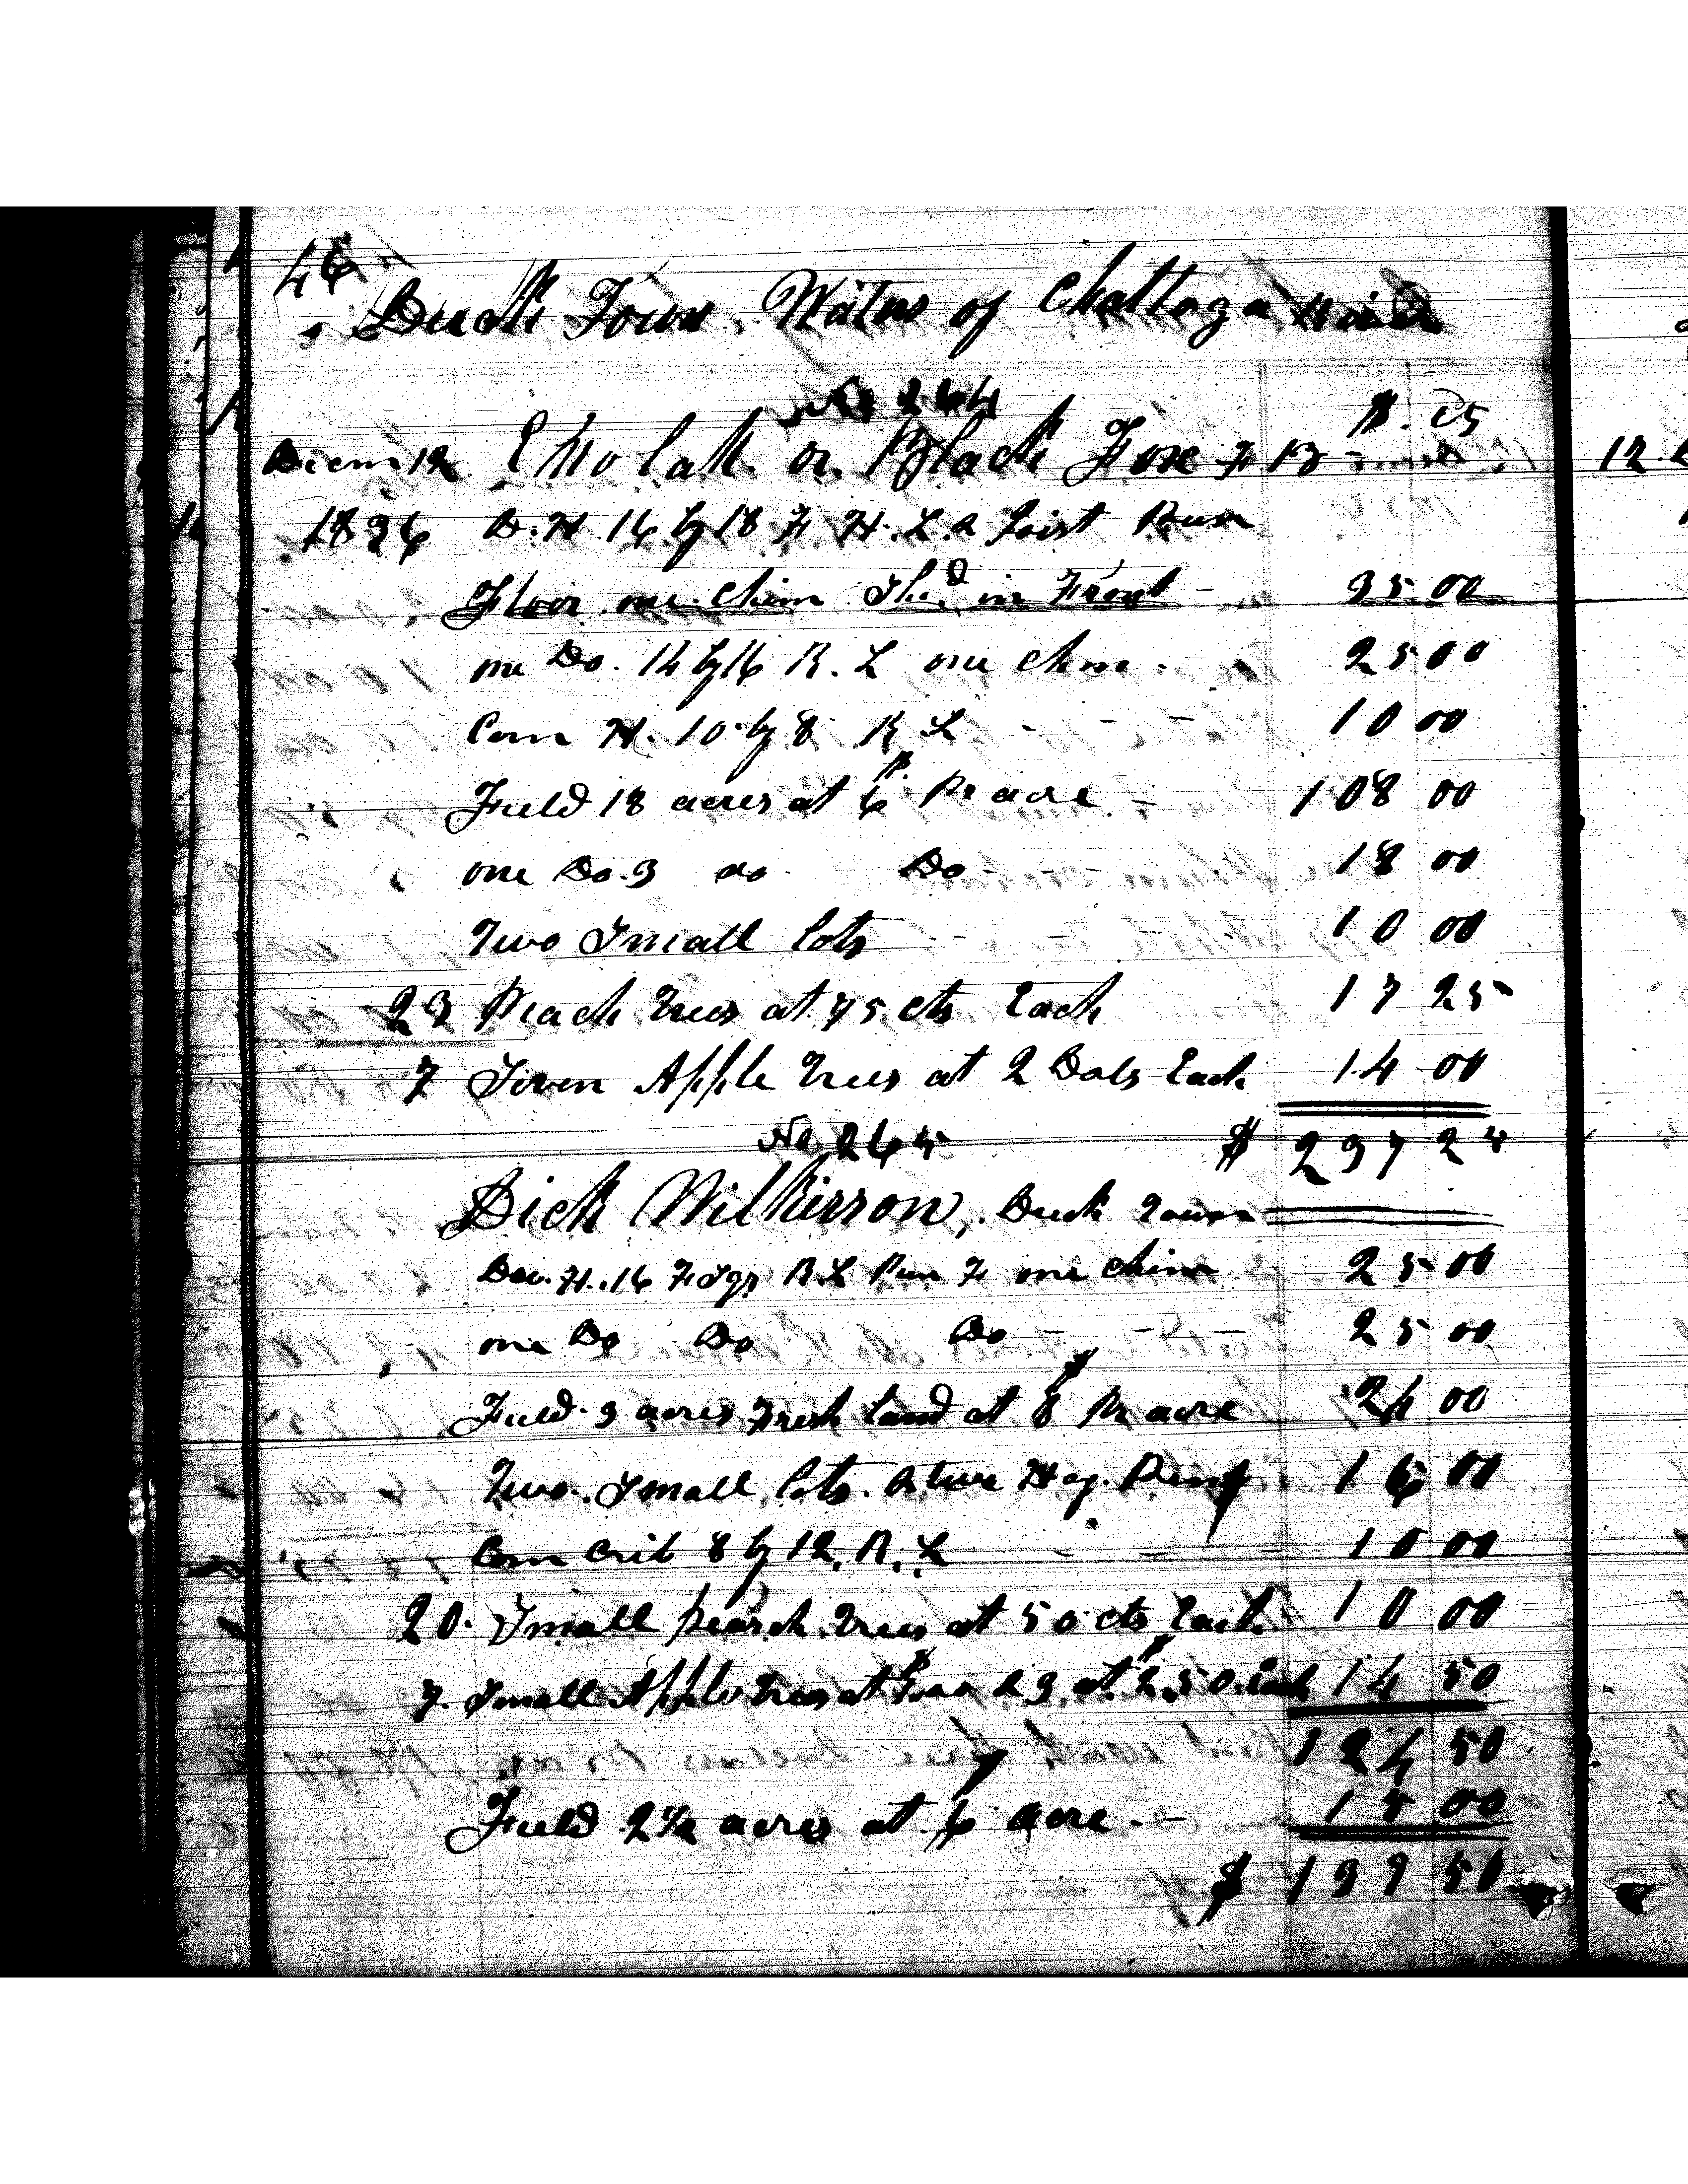 46
Duck Town Waters of Chattoga River
No 264
$. Cts
Decm 12 or Black Fox F B
1836 D.H 16 by 18 F H.L. & Joist Pun
Floor one Chim Shed in Front - 35 00
one Do. 14 by 16 R. L one Chim. - 25 00
Corn H. 10 by 8 R L - - - 10 00
Field 18 acres at 6$ Pr acre - 108 00
one Do. 3 do Do - - - 18 00
Two Small lots - - - 10 00
23 Peach Trees at 75 cts Each 17 25
7 Seven Apple Trees at 2 Dols Each 14 00
No 265 $ 237 25
Dick Wilkerson, Duck Town
Dw. H. 16 F Sqr R.L Pun F one Chim 25 00
one Do Do Do - - - 25 00
Field 3 acres Fresh land at 8$ Pr acre 24 00
Two Small lots. & two Hog Pens 16 00
Corn Crib 8 by 12, R. L - - - 10 00
20. Small peach Trees at 50 cts Each 10 00
7. Small Apple Trees at & 3 at $2.50 Each 14 50
124 50
Field 2½ acres at 6 acre. - 15 00
$ 139 50
12